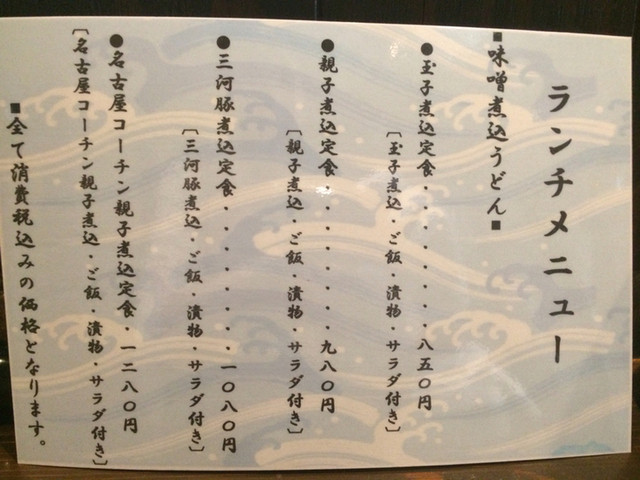 ランチメニュー
■味噌煮込うどん■
●玉子煮込定食・・・・・・・・八五〇円
〔玉子煮込・ご飯・漬物・サラダ付き〕
●親子煮込定食・・・・・・・・九八〇円
〔親子煮込・ご飯・漬物・サラダ付き〕
●三河豚煮込定食・・・・・・・一〇八〇円
〔三河豚煮込・ご飯・漬物・サラダ付き〕
●名古屋コーチン親子煮込定食・一二八〇円
〔名古屋コーチン親子煮込・ご飯・漬物・サラダ付き〕
■全て消費税込みの価格となります。